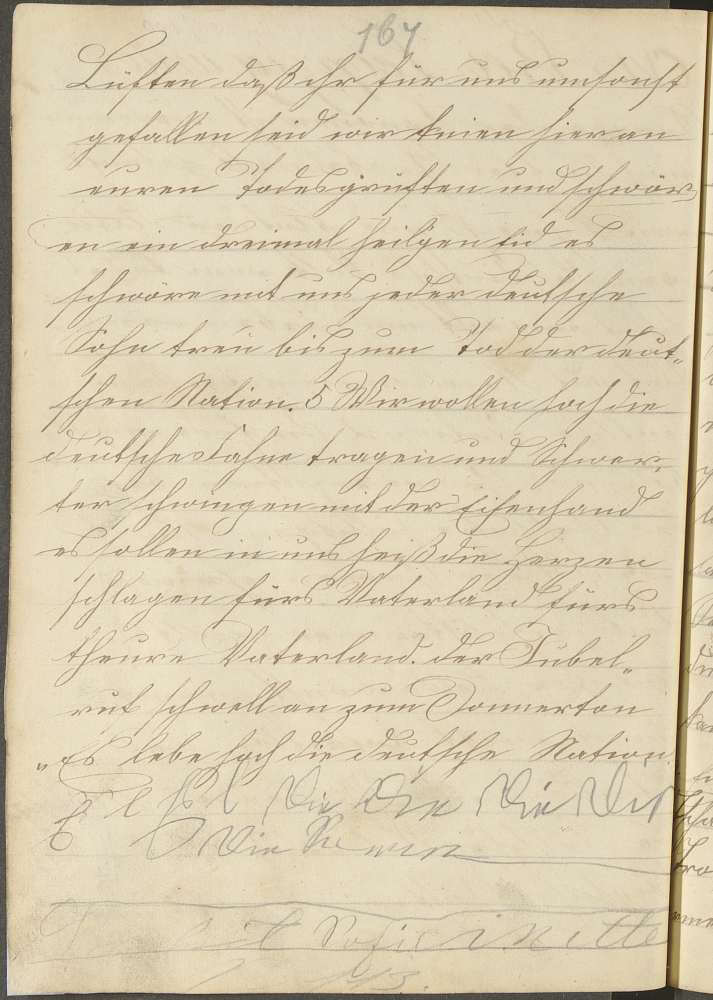 167
Lüften daß ihr für uns umsonst
gefallen seid wir knien hier an
euren Todesgrüften und schwör
en ein dreimal heilgen Eid es
schwöre mit uns jeder deutsche
Sohn treu bis zum Tod der deut„
schen Nation. 5 Wir wollen hoch die
deutsche Fahne tragen und Schwer„
ter schwingen mit der Eisenhand
es sollen in uns heiß die Herzen
schlagen fürs Vaterland fürs
theure Vaterland. der Jubel„
ruf schwell an zum Donnerton
„Es lebe hoch die deutsche Nation.
Die Die Die
Die